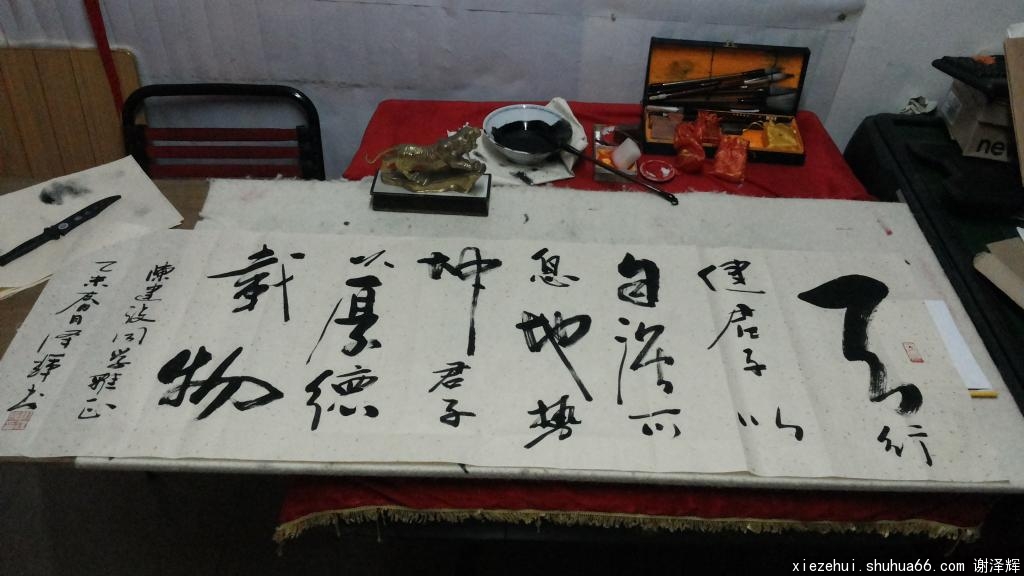 天行
健君子以
自强不
息地势
坤君子
以厚德
載物
陳建波同学雅正
乙未春月泽辉书
ne
xiezehui.shuhua66.com 谢泽辉